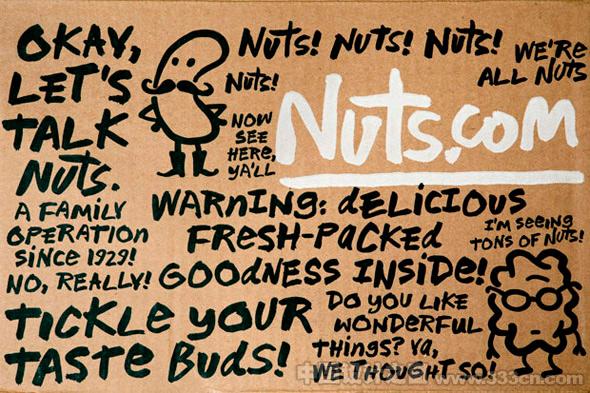 OKAY,
LET'S
TALK
Nuts.
A FAMILY
OPERATION
SINCE 1929!
NO, REALLY!
Nuts! Nuts! Nuts!
WE'RE
ALL NUTS
Nuts!
NOW
SEE
HERE,
YA'LL
Nuts.com
WARNING: DELICIOUS
FRESH-PACKED
GOODNESS INSIDE!
I'M SEEING
TONS OF NUTS!
TICKLE YOUR
TASTE BUDS!
DO YOU LIKE
WONDERFUL
THINGS? YA,
WE THOUGHT SO!
www.333cn.com